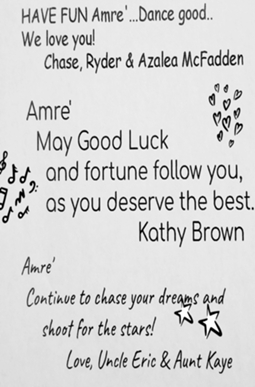 HAVE FUN Amre'...Dance good..
We love you!
Chase, Ryder & Azalea McFadden
Amre'
May Good Luck
and fortune follow you,
as you deserve the best.
Kathy Brown
Amre'
Continue to chase your dreams and
shoot for the stars!
Love, Uncle Eric & Aunt Kaye